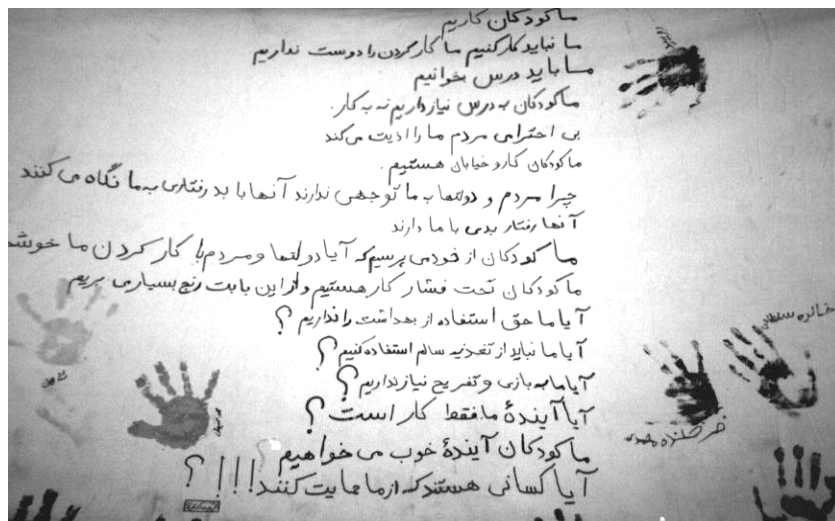 ما کودکان کاریم
ما نباید کار کنیم ما کار کردن را دوست نداریم
ما باید درس بخوانیم
ما کودکان به درس نیاز داریم نه به کار.
بی احترامی مردم ما را اذیت می کند
ما کودکان کار و خیابان هستیم.
چرا مردم و دولتها به ما توجهی ندارند آنها با بد رفتاری به ما نگاه می کنند
آنها رفتار بدی با ما دارند
ما کودکان از خود می پرسیم که آیا دولتها و مردم با کار کردن ما خوش
ما کودکان تحت فشار کار هستیم و از این بابت رنج بسیار می بریم
آیا ما حق استفاده از بهداشت را نداریم ؟
آیا ما نباید از تغذیه سالم استفاده کنیم ؟
آیا ما به بازی و تفریح نیاز نداریم ؟
آیا آیندهٔ ما فقط کار است ؟
ما کودکان آیندهٔ خوب می خواهیم ؟
آیا کسانی هستند که از ما حمایت کنند !!!! ؟
خالده سلطانی